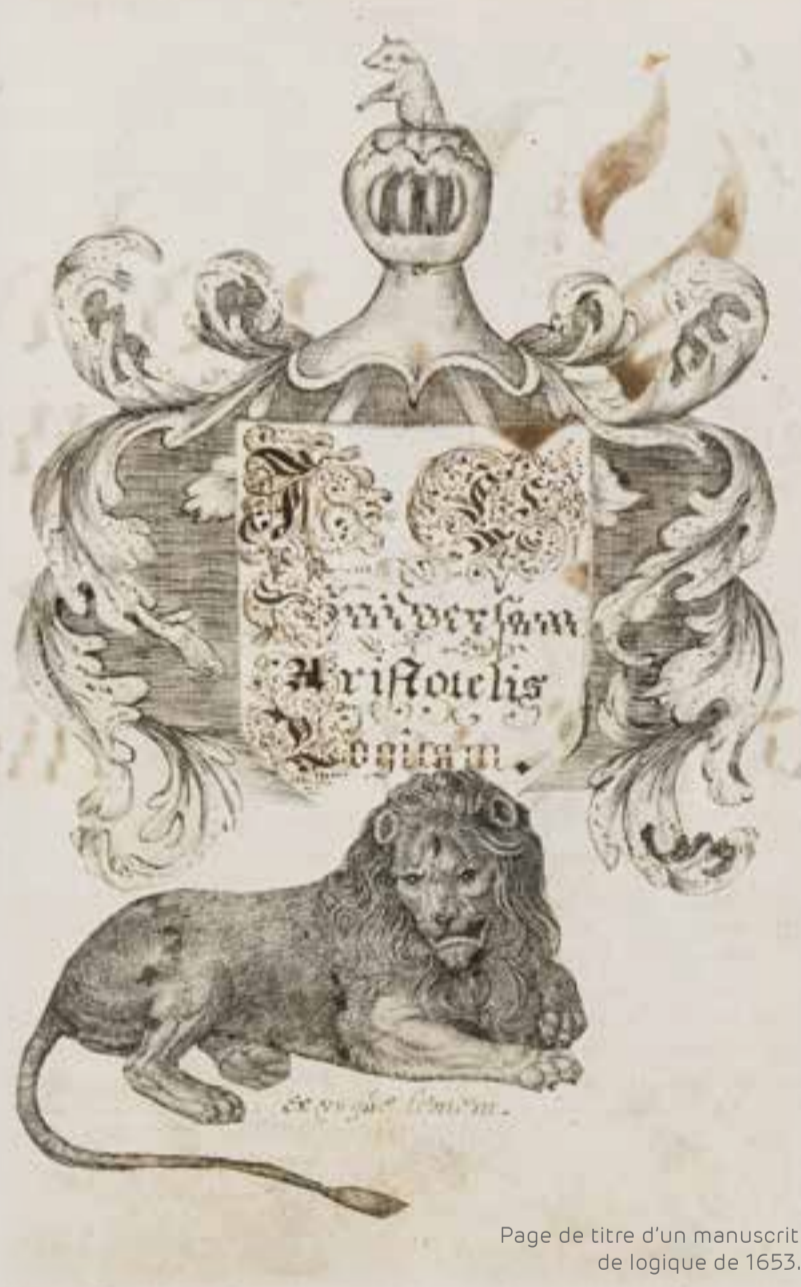 Universam
Aristotelis
Logicam.
ex ungue leonem.
Page de titre d'un manuscrit
de logique de 1653.